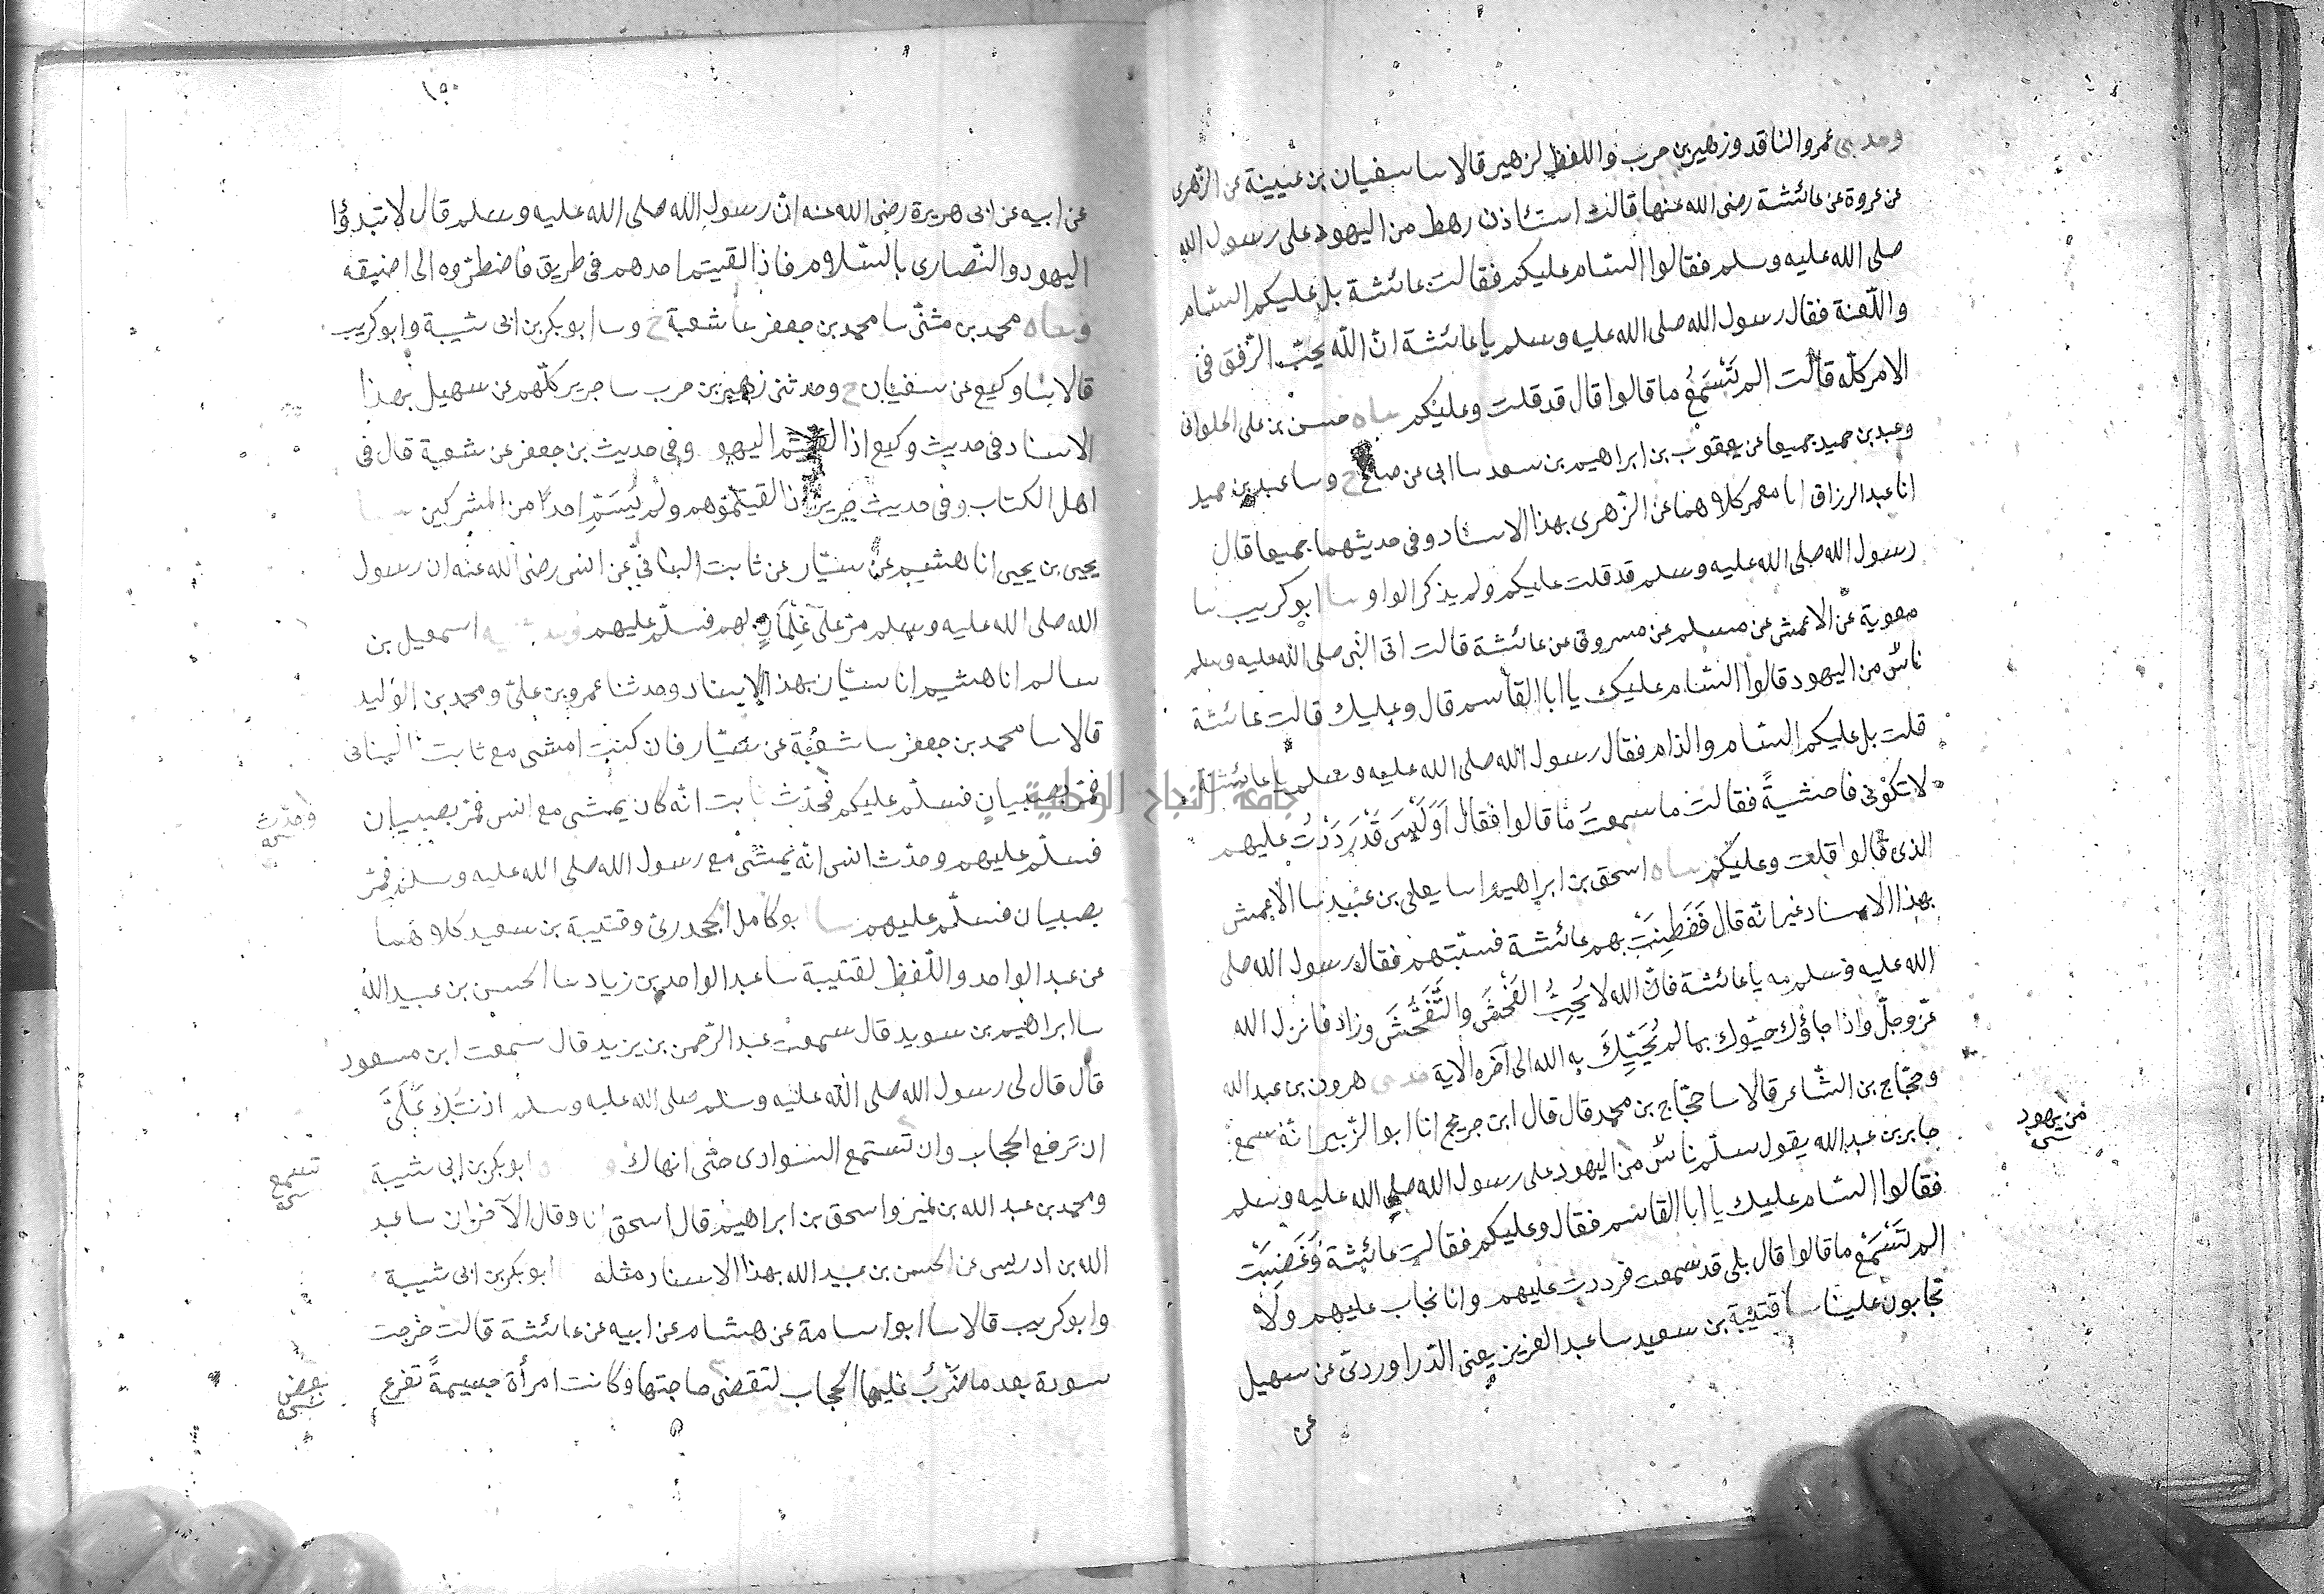 وحدثنى عمرو الناقد وزهير بن حرب واللفظ لزهير قالا سا سفيان بن عيينة عن الزهرى
عن عروة عن عائشة رضى الله عنها قالت استئاذن رهط من اليهود على رسول الله
صلى الله عليه وسلم فقالوا السام عليكم فقالت عائشة بل عليكم السام
واللعنة فقال رسول الله صلى الله عليه وسلم يا عائشة ان الله يحب الرفق فى
الامر كله قالت الم تسمع ما قالوا قال قد قلت وعليكم ساه حسن بن على الحلوانى
وعبد بن حميد جميعا عن يعقوب بن ابراهيم بن سعد سا ابى عن صالح ح وسا عبد بن حميد
انا عبد الرزاق انا معمر كلاهما عن الزهرى بهذا الاسناد وفى حديثهما جميعا قال
رسول الله صلى الله عليه وسلم قد قلت عليكم ولم يذكر الواو سا ابو كريب سا
معوية عن الاعمش عن مسلم عن مسروق عن عائشة قالت اتى النبى صلى الله عليه وسلم
ناس من اليهود قالوا السام عليك يا ابا القاسم قال وعليك قالت عائشة
قلت بل عليكم السام والذام فقال رسول الله صلى الله عليه وسلم يا عائشة
لا تكونى فاحشة فقالت ما سمعت ما قالوا فقال اَوَلَيْسَ قَدْ رَدَدْتُ عليهم
الذى قالوا قلت وعليكم ساه اسحق بن ابراهيم اسا يعلى بن عبيد سا الاعمش
بهذا الاسناد غير انه قال فَفَطِنَتْ بهم عائشة فسبتهم فقال رسول الله صلى
الله عليه وسلم مه يا عائشة فان الله لا يحب الفحش والتفحش وزاد فانزل الله
عز وجل واذا جاؤك حيوك بما لم يُحَيِّكَ به الله الى آخره الاية حدثنى هرون بن عبد الله
وحجاج بن الشاعر قالا سا حجاج بن محمد قال قال ابن جريج انا ابو الزبير انه سمع
جابر بن عبد الله يقول سلم ناس من اليهود على رسول الله صلى الله عليه وسلم
من يهود
فقالوا السام عليك يا ابا القاسم فقال وعليكم فقالت عائشة وَغَضِبَتْ
الم تَسْمَعْ ما قالوا قال بلى قد سمعت فرددت عليهم وانا نجاب عليهم ولا
تجابون علينا سا قتيبة بن سعيد سا عبد العزيز يعنى الدراوردى عن سهيل
عن
١٥٠
عن ابيه عن ابى هريرة رضى الله عنه ان رسول الله صلى الله عليه وسلم قال لا تبدؤا
اليهود والنصارى بالسلام فاذا لقيتم احدهم فى طريق فاضطروه الى اضيقه
وساه محمد بن مثنى سا محمد بن جعفر سا شعبة ح وسا ابو بكر بن ابى شيبة وابو كريب
قالا سا وكيع عن سفيان ح وحدثنى زهير بن حرب سا جرير كلهم عن سهيل بهذا
الاسناد فى حديث وكيع اذا لقيتم اليهود وفى حديث بن جعفر عن شعبة قال فى
اهل الكتاب وفى حديث جرير اذا لقيتموهم ولم يُسَمِّ احدًا من المشركين سا
يحيى بن يحيى انا هشيم عن سيار عن ثابت البنانى عن انس رضى الله عنه ان رسول
الله صلى الله عليه وسلم مر على غِلْمَانٍ لهم فسلم عليهم وحدثنيه اسمعيل بن
سالم انا هشيم انا سيار بهذا الاسناد وحدثنا عمرو بن على ومحمد بن الوليد
قالا سا محمد بن جعفر سا شعبة عن سيار قال كنت امشى مع ثابت البنانى
فمر بصبيان فسلم عليكم فحدث ثابت انه كان يمشى مع انس فمر بصبيان
وحدث
فسلم عليهم وحدث انس انه يمشى مع رسول الله صلى الله عليه وسلم فمر
بصبيان فسلم عليهم سا ابو كامل الجحدرى وقتيبة بن سعيد كلاهما
عن عبد الواحد واللفظ لقتيبة سا عبد الواحد بن زياد سا الحسن بن عبيد الله
سا ابراهيم بن سويد قال سمعت عبد الرحمن بن يزيد قال سمعت ابن مسعود
قال قال لى رسول الله صلى الله عليه وسلم صلى الله عليه وسلم اذنك عَلَىَّ
ان ترفع الحجاب وان تستمع السوادى حتى انهاك ابو بكر بن ابى شيبة
تسمع
ومحمد بن عبد الله بن نمير واسحق بن ابراهيم قال اسحق انا وقال الآخران سا عبد
الله بن ادريس عن الحسن بن عبيد الله بهذا الاسناد مثله ابو بكر بن ابى شيبة
وابو كريب قالا سا ابو اسامة عن هشام عن ابيه عن عائشة قالت خرجت
سودة بعد ما ضُرِبَ عليها الحجاب لتقضى حاجتها وكانت امرأة جسيمةً تفرع
بعض
جامعة النجاح الوطنية